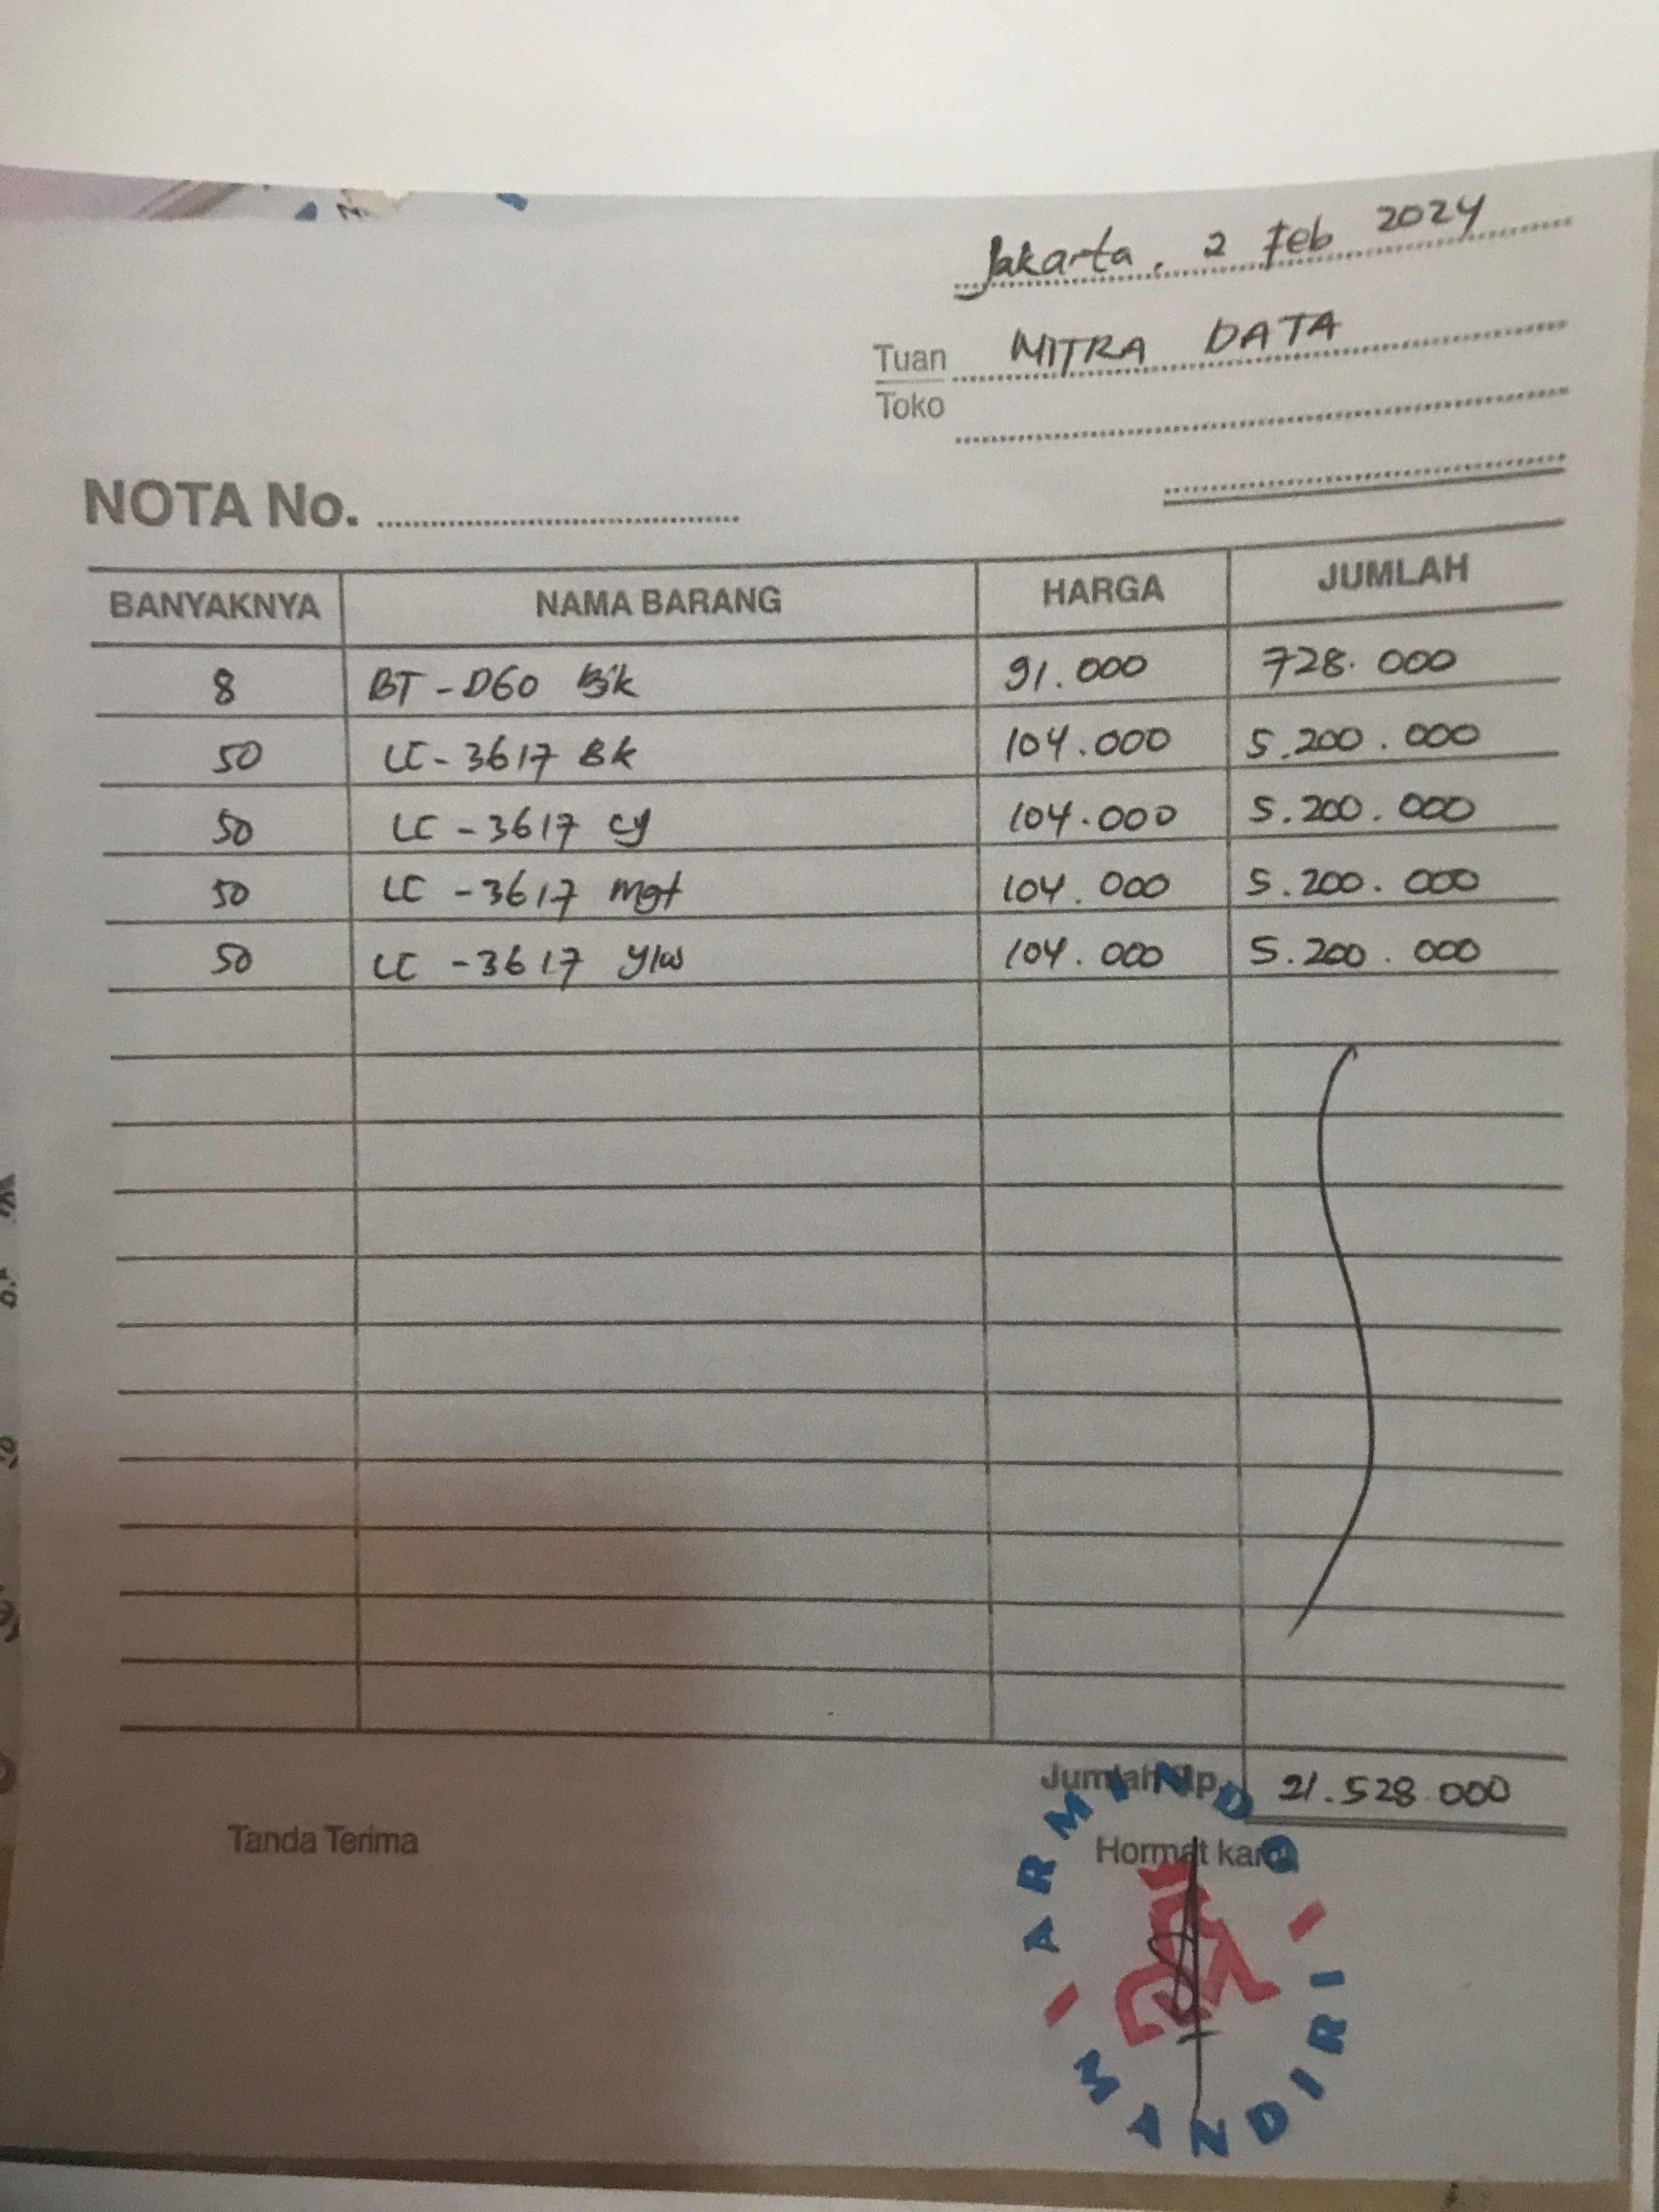 Jakarta, 2 Feb 2024
Tuan MITRA DATA
Toko
NOTA No.
BANYAKNYA NAMA BARANG HARGA JUMLAH
8 BT-D60 Bk 91.000 728.000
50 LC-3617 Bk 104.000 5.200.000
50 LC-3617 cy 104.000 5.200.000
50 LC-3617 Mgt 104.000 5.200.000
50 LC-3617 Ylw 104.000 5.200.000
Jumlah Rp. 21.528.000
Tanda Terima Hormat kami,
ARMINDO
MANDIRI